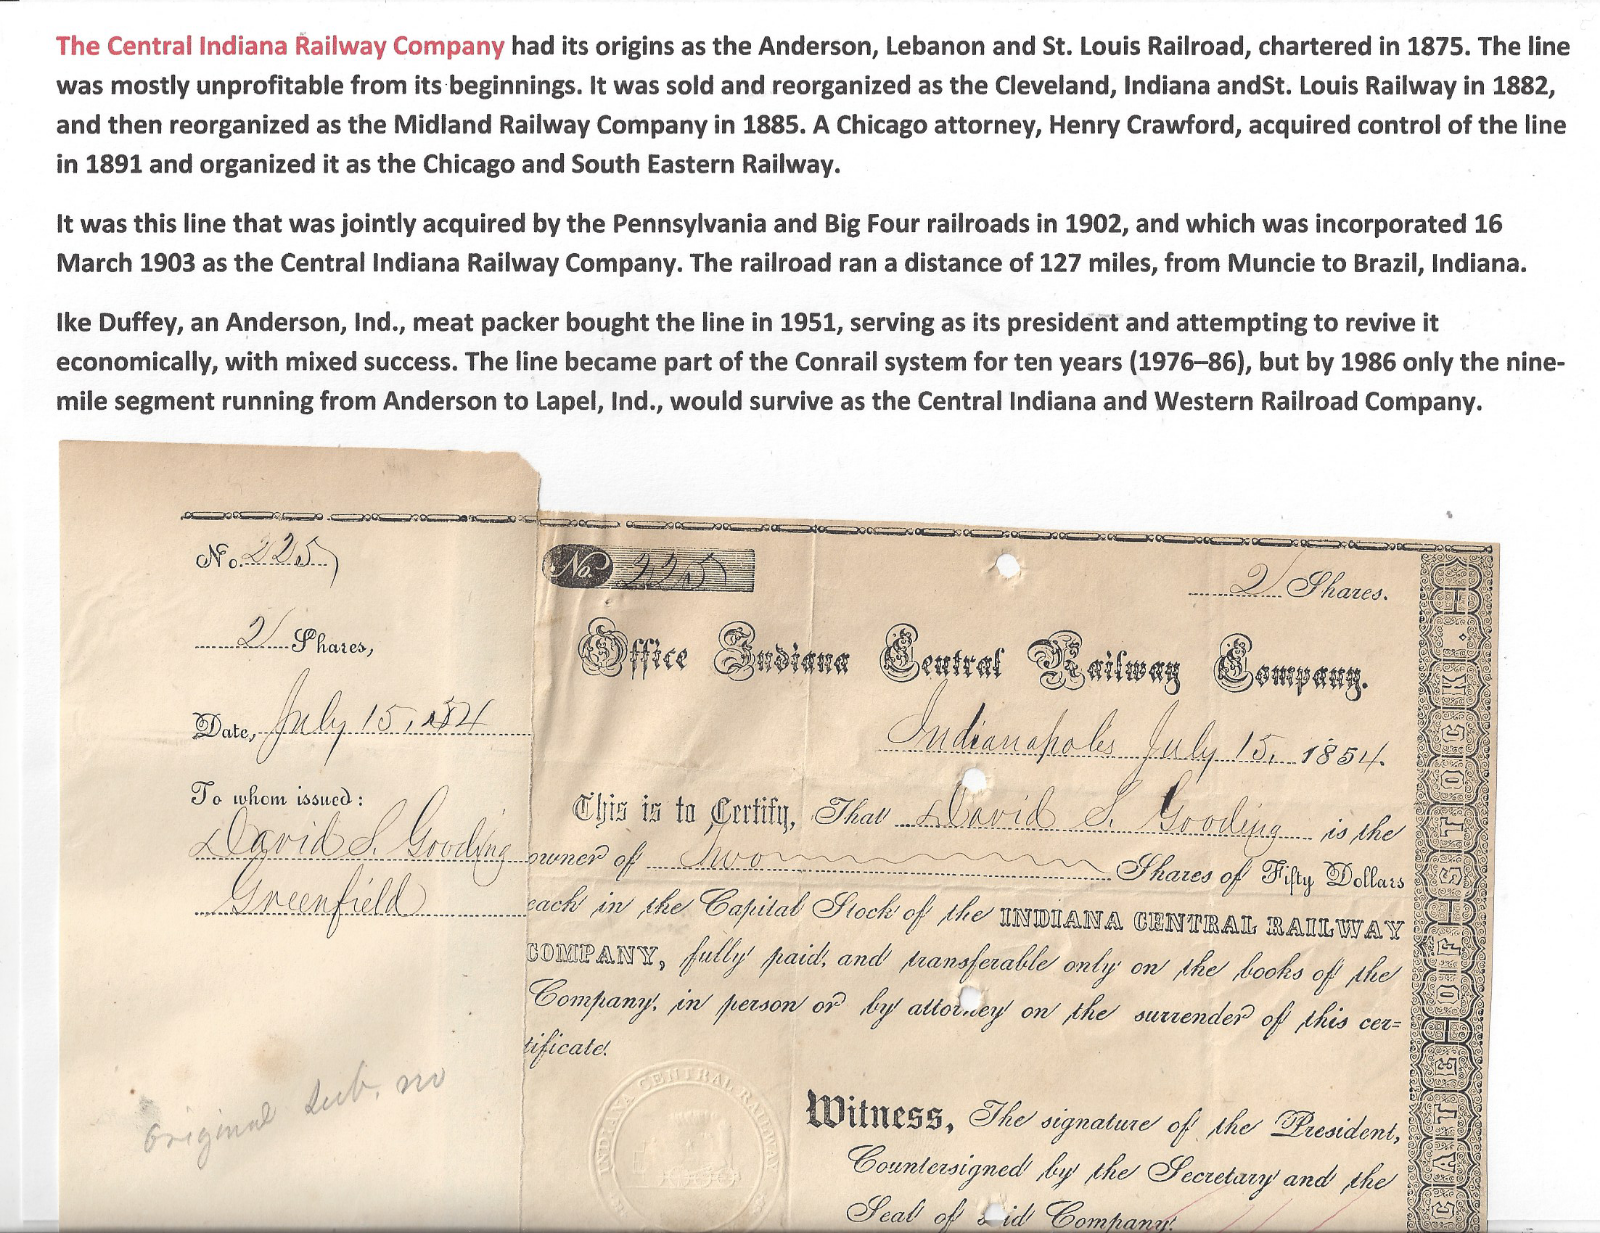 The Central Indiana Railway Company had its origins as the Anderson, Lebanon and St. Louis Railroad, chartered in 1875. The line
was mostly unprofitable from its beginnings. It was sold and reorganized as the Cleveland, Indiana andSt. Louis Railway in 1882,
and then reorganized as the Midland Railway Company in 1885. A Chicago attorney, Henry Crawford, acquired control of the line
in 1891 and organized it as the Chicago and South Eastern Railway.
It was this line that was jointly acquired by the Pennsylvania and Big Four railroads in 1902, and which was incorporated 16
March 1903 as the Central Indiana Railway Company. The railroad ran a distance of 127 miles, from Muncie to Brazil, Indiana.
Ike Duffey, an Anderson, Ind., meat packer bought the line in 1951, serving as its president and attempting to revive it
economically, with mixed success. The line became part of the Conrail system for ten years (1976–86), but by 1986 only the nine-
mile segment running from Anderson to Lapel, Ind., would survive as the Central Indiana and Western Railroad Company.
No. 225
2 Shares,
Date, July 15, 1854
To whom issued:
David S. Gooding
Greenfield
Original Sub. no
No. 225
2 Shares.
Office Indiana Central Railway Company.
Indianapolis July 15, 1854.
This is to Certify, That David S. Gooding is the
owner of Two Shares of Fifty Dollars
each in the Capital Stock of the INDIANA CENTRAL RAILWAY
COMPANY, fully paid, and transferable only on the books of the
Company, in person or by attorney on the surrender of this cer=
tificate.
INDIANA CENTRAL RAILWAY
Witness, The signature of the President,
Countersigned by the Secretary and the
Seal of said Company.
CATE OF STOCK. CO